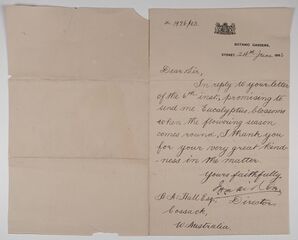 BOTANIC GARDENS,
SYDNEY, 24th June
Dear Sir,
In reply to your letter
of the 6th inst, promising to
send me Eucalyptus blossoms
when the flowering season
comes round, I thank you
for your very great kind-
ness in the matter.
Yours faithfully,
Director
Hall Esq.
Cossack,
W Australia.